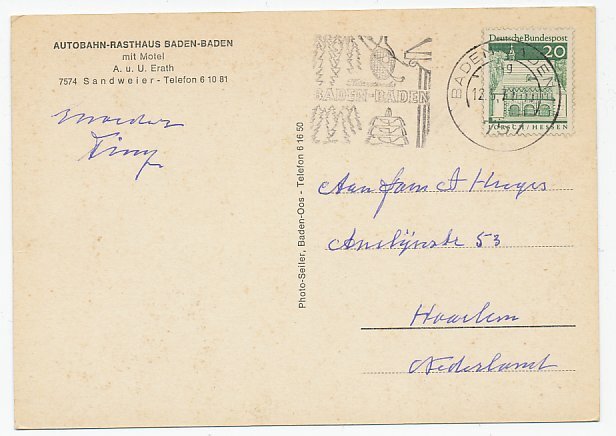 AUTOBAHN-RASTHAUS BADEN-BADEN
mit Motel
A. u. U. Erath
7574 Sandweier - Telefon 6 10 81
Moeder
Photo-Seiler, Baden-Oos - Telefon 6 16 50
BADEN-BADEN
BADEN-BADEN 1
Deutsche Bundespost
20
LORSCH/HESSEN
Aan Fam
53
Haarlem
Nederland